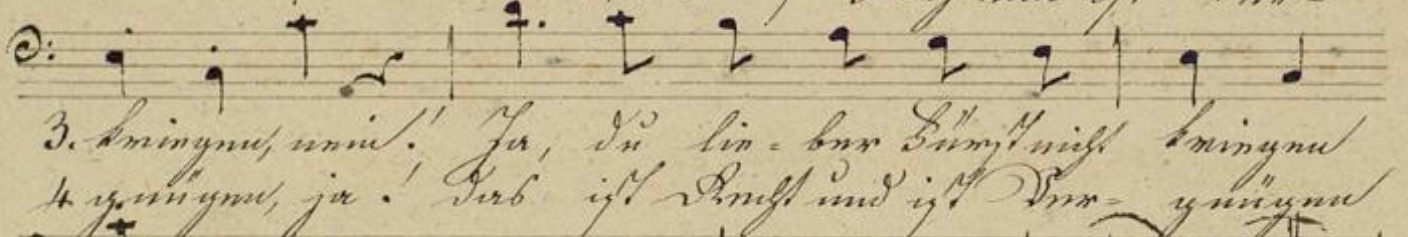 3. kriegen, nein! Ja, du lie- ber Fürst nicht kriegen
4 gnügen, ja! das ist Recht und ist Ver- gnügen